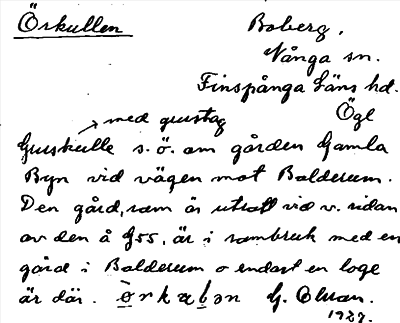 Örkullen
Boberg,
Vånga sn.
Finspånga Läns hd.
Ögl
med grustag
Gruskulle s.ö. om gården Gamla
Byn vid vägen mot Balderum.
Den gård, som är utsatt vid v. sidan
av den å G55, är i sambruk med en
gård i Balderum o endast en loge
är där. G. Ohman.